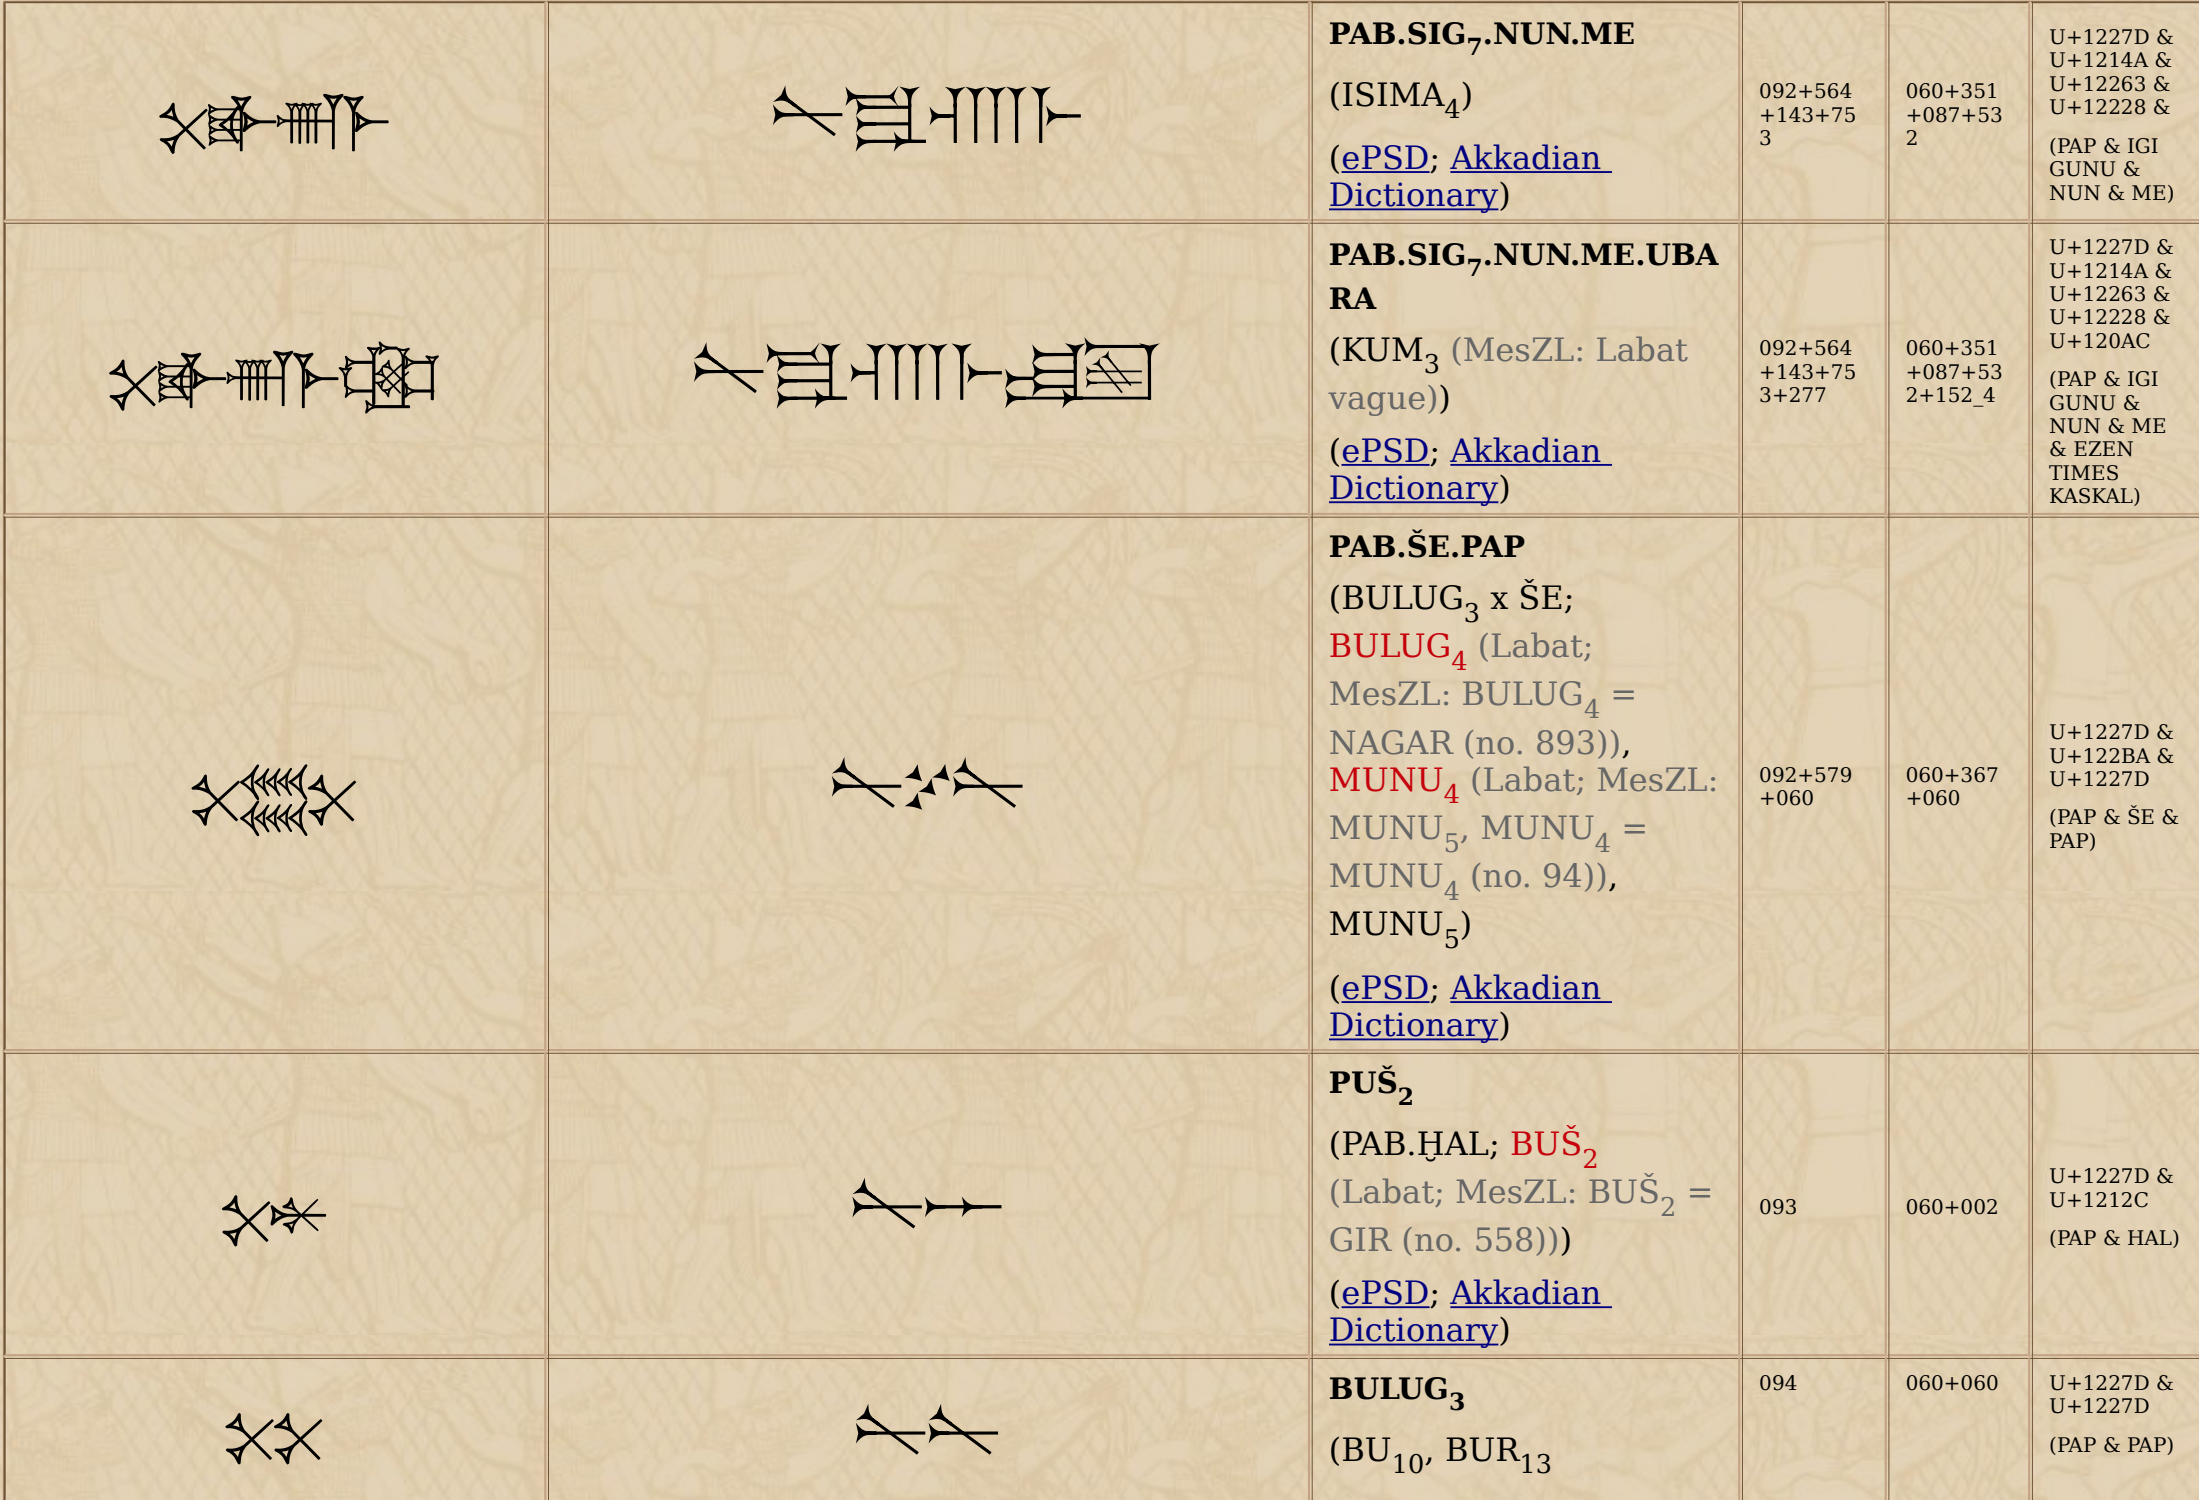 𒉽𒅊𒉣𒈨 𒉽𒅊𒉣𒈨 PAB.SIG₇.NUN.ME
(ISIMA₄)
(ePSD; Akkadian
Dictionary)
092+564
+143+75
3
060+351
+087+53
2
U+1227D &
U+1214A &
U+12263 &
U+12228 &
(PAP & IGI
GUNU &
NUN & ME)
𒉽𒅊𒉣𒈨𒂬 𒉽𒅊𒉣𒈨𒂬 PAB.SIG₇.NUN.ME.UBA
RA
(KUM₃ (MesZL: Labat
vague))
(ePSD; Akkadian
Dictionary)
092+564
+143+75
3+277
060+351
+087+53
2+152_4
U+1227D &
U+1214A &
U+12263 &
U+12228 &
U+120AC
(PAP & IGI
GUNU &
NUN & ME
& EZEN
TIMES
KASKAL)
𒉽𒊺𒉽 𒉽𒊺𒉽 PAB.ŠE.PAP
(BULUG₃ x ŠE;
BULUG₄ (Labat;
MesZL: BULUG₄ =
NAGAR (no. 893)),
MUNU₄ (Labat; MesZL:
MUNU₅, MUNU₄ =
MUNU₄ (no. 94)),
MUNU₅)
(ePSD; Akkadian
Dictionary)
092+579
+060
060+367
+060
U+1227D &
U+122BA &
U+1227D
(PAP & ŠE &
PAP)
𒉽𒄬 𒉽𒄬 PUŠ₂
(PAB.ḪAL; BUŠ₂
(Labat; MesZL: BUŠ₂ =
GIR (no. 558)))
(ePSD; Akkadian
Dictionary)
093
060+002
U+1227D &
U+1212C
(PAP & HAL)
𒉽𒉽 𒉽𒉽 BULUG₃
(BU₁₀, BUR₁₃
094
060+060
U+1227D &
U+1227D
(PAP & PAP)